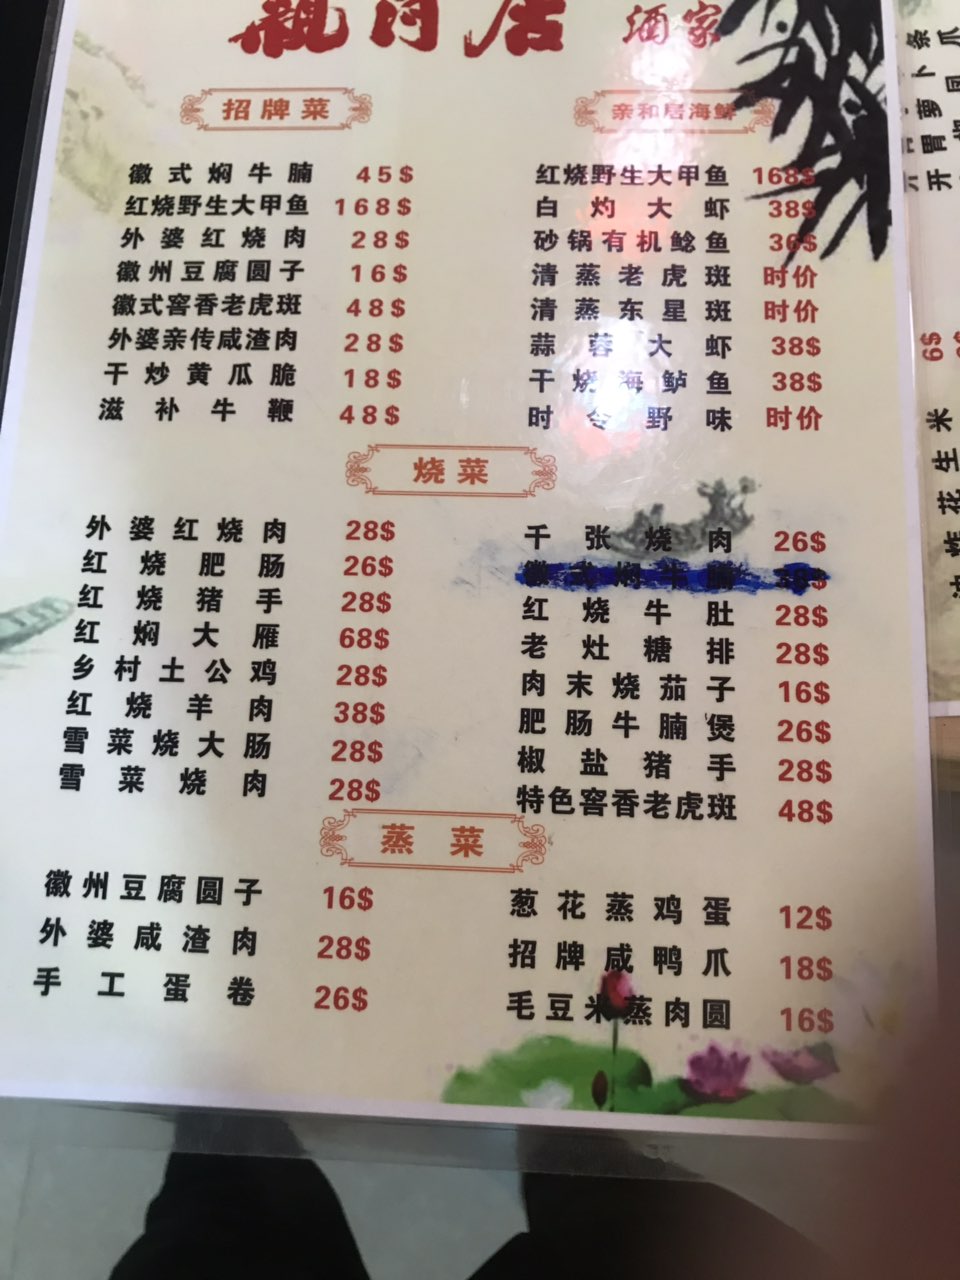 亲和居 酒家
招牌菜
徽式焖牛腩 45$
红烧野生大甲鱼 168$
外婆红烧肉 28$
徽州豆腐圆子 16$
徽式窖香老虎斑 48$
外婆亲传咸渣肉 28$
干炒黄瓜脆 18$
滋补牛鞭 48$
亲和居海鲜
红烧野生大甲鱼 168$
白灼大虾 38$
砂锅有机鲶鱼 36$
清蒸老虎斑 时价
清蒸东星斑 时价
蒜蓉大虾 38$
干烧海鲈鱼 38$
时令野味 时价
烧菜
外婆红烧肉 28$
红烧肥肠 26$
红烧猪手 28$
红焖大雁 68$
乡村土公鸡 28$
红烧羊肉 38$
雪菜烧大肠 28$
雪菜烧肉 28$
千张烧肉 26$
徽式焖牛腩
红烧牛肚 28$
老灶糖排 28$
肉末烧茄子 16$
肥肠牛腩煲 26$
椒盐猪手 28$
特色窖香老虎斑 48$
蒸菜
徽州豆腐圆子 16$
外婆咸渣肉 28$
手工蛋卷 26$
葱花蒸鸡蛋 12$
招牌咸鸭爪 18$
毛豆米蒸肉圆 16$
6$
花生米